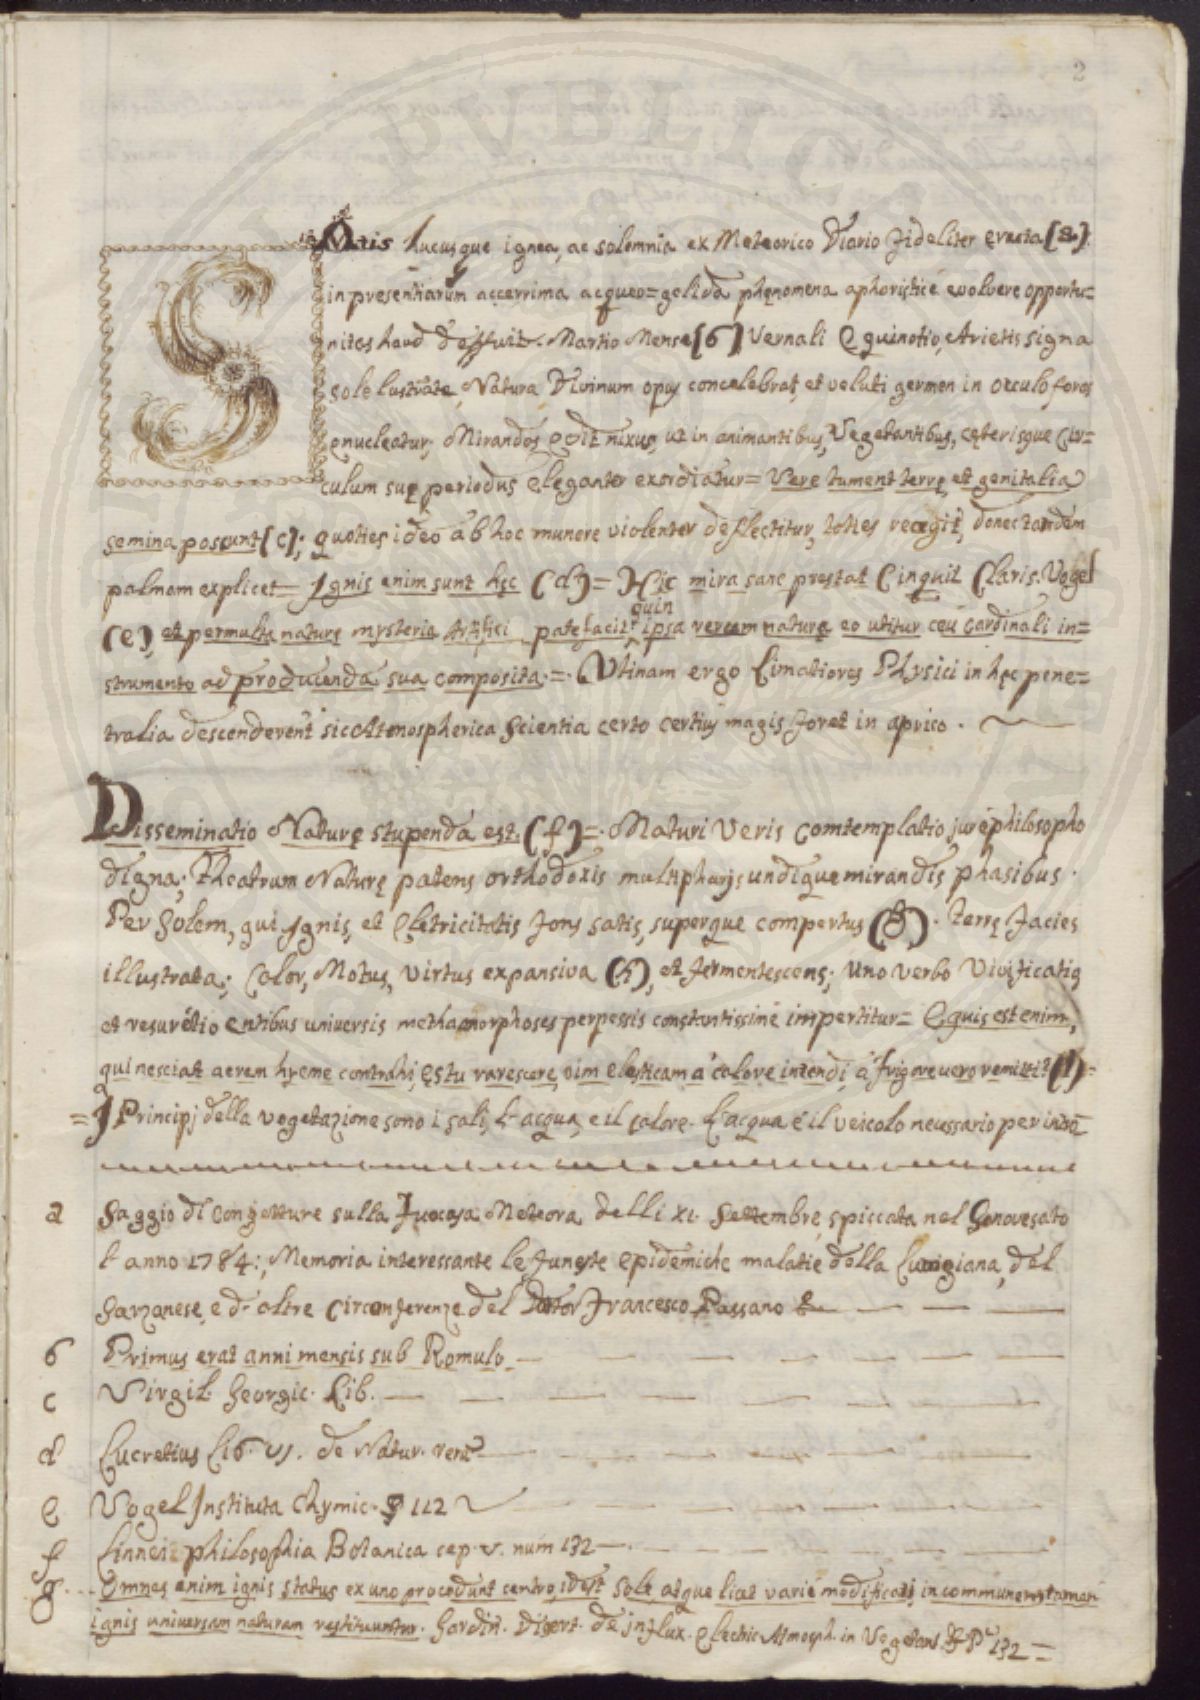 2
SAtis hucusque ignea, ac solemnia ex Meteorico Diario fideliter evecta [a]
in presentiarum accerrima acqueo=gelida phęnomena aphoristicé evolvere opportu=
nitas haud deffuit. Martio Mense [b] Vernali Equinotio, Arietis signa
sole lustrate, Natura Divinum opus concelebrat, et veluti germen in occulo foras
enucleatur; Mirandos edit nixus, ut in animantibus, Vegetantibus, cęterisque Cir=
culum suę periodus eleganter exordiatur= Vere tument terrę, et genitalia
semina poscunt [c]; quoties ideo ab hoc munere violenter deflectitur, toties recęgit, donec tandem
palmam explicet= Ignis enim sunt hęc (d)= Hic mira sane prestat (inquit Claris. Vogel
(e), et permulta naturę mysteria Artifici patefacit, quin ipsa rerum natura eo utitur ceu cardinali in=
strumento ad producenda sua composita.=. Utinam ergo Limatiores Physici in hęc pene=
tralia descenderent sic Atmospherica Scientia certo certius magis foret in aprico.
Disseminatio Naturę stupenda est. (f)=. Maturi Veris comtemplatio, jure philosopho
digna; theatrum Naturę patens orthodoxis multiphariis undique mirandis phasibus.
Per Solem, qui Ignis, et Eletricitatis fons satis, superque compertus (g). terrę facies
illustrata; Calor, Motus, virtus expansiva (h), et fermentescens; uno verbo Vivificatio
et resurétio entibus universis methamorphoses perpessis constantissimé impertitur= Equis est enim,
qui nesciat aerem hyeme contrahi, ęstu rarescere, vim elasticam a calore intendi, a frigore vero remitti? (I)=
=I Principj della vegetazione sono i sali, L'acqua, e il calore. L'acqua é il veicolo necessario per intro=
a Saggio di congetture sulla fuocosa Meteora delli xi. Settembre spiccata nel Genovesato
l'anno 1784:, Memoria interessante le funeste epidemiche malatie della Lunigiana, del
Sarzanese, e d'oltre circonferenze del Dottor Francesco Passano &
b Primus erat anni mensis sub Romulo
c Virgil. Georgic. Lib.
d Lucretius Lib. VI. de Natur. rerũ
e Vogel Instituta Chymic. § 112
f Linnei philosophia Botanica cap. v. num 132
g Omnes enim ignis status ex uno procedunt centro, idest Sole, atque licet varié modificati, in communem tamen
ignis universam naturam restituuntur. Gardin. Dissert. de influx. electric. Atmosph. in Vegetant. § Pº 132 =